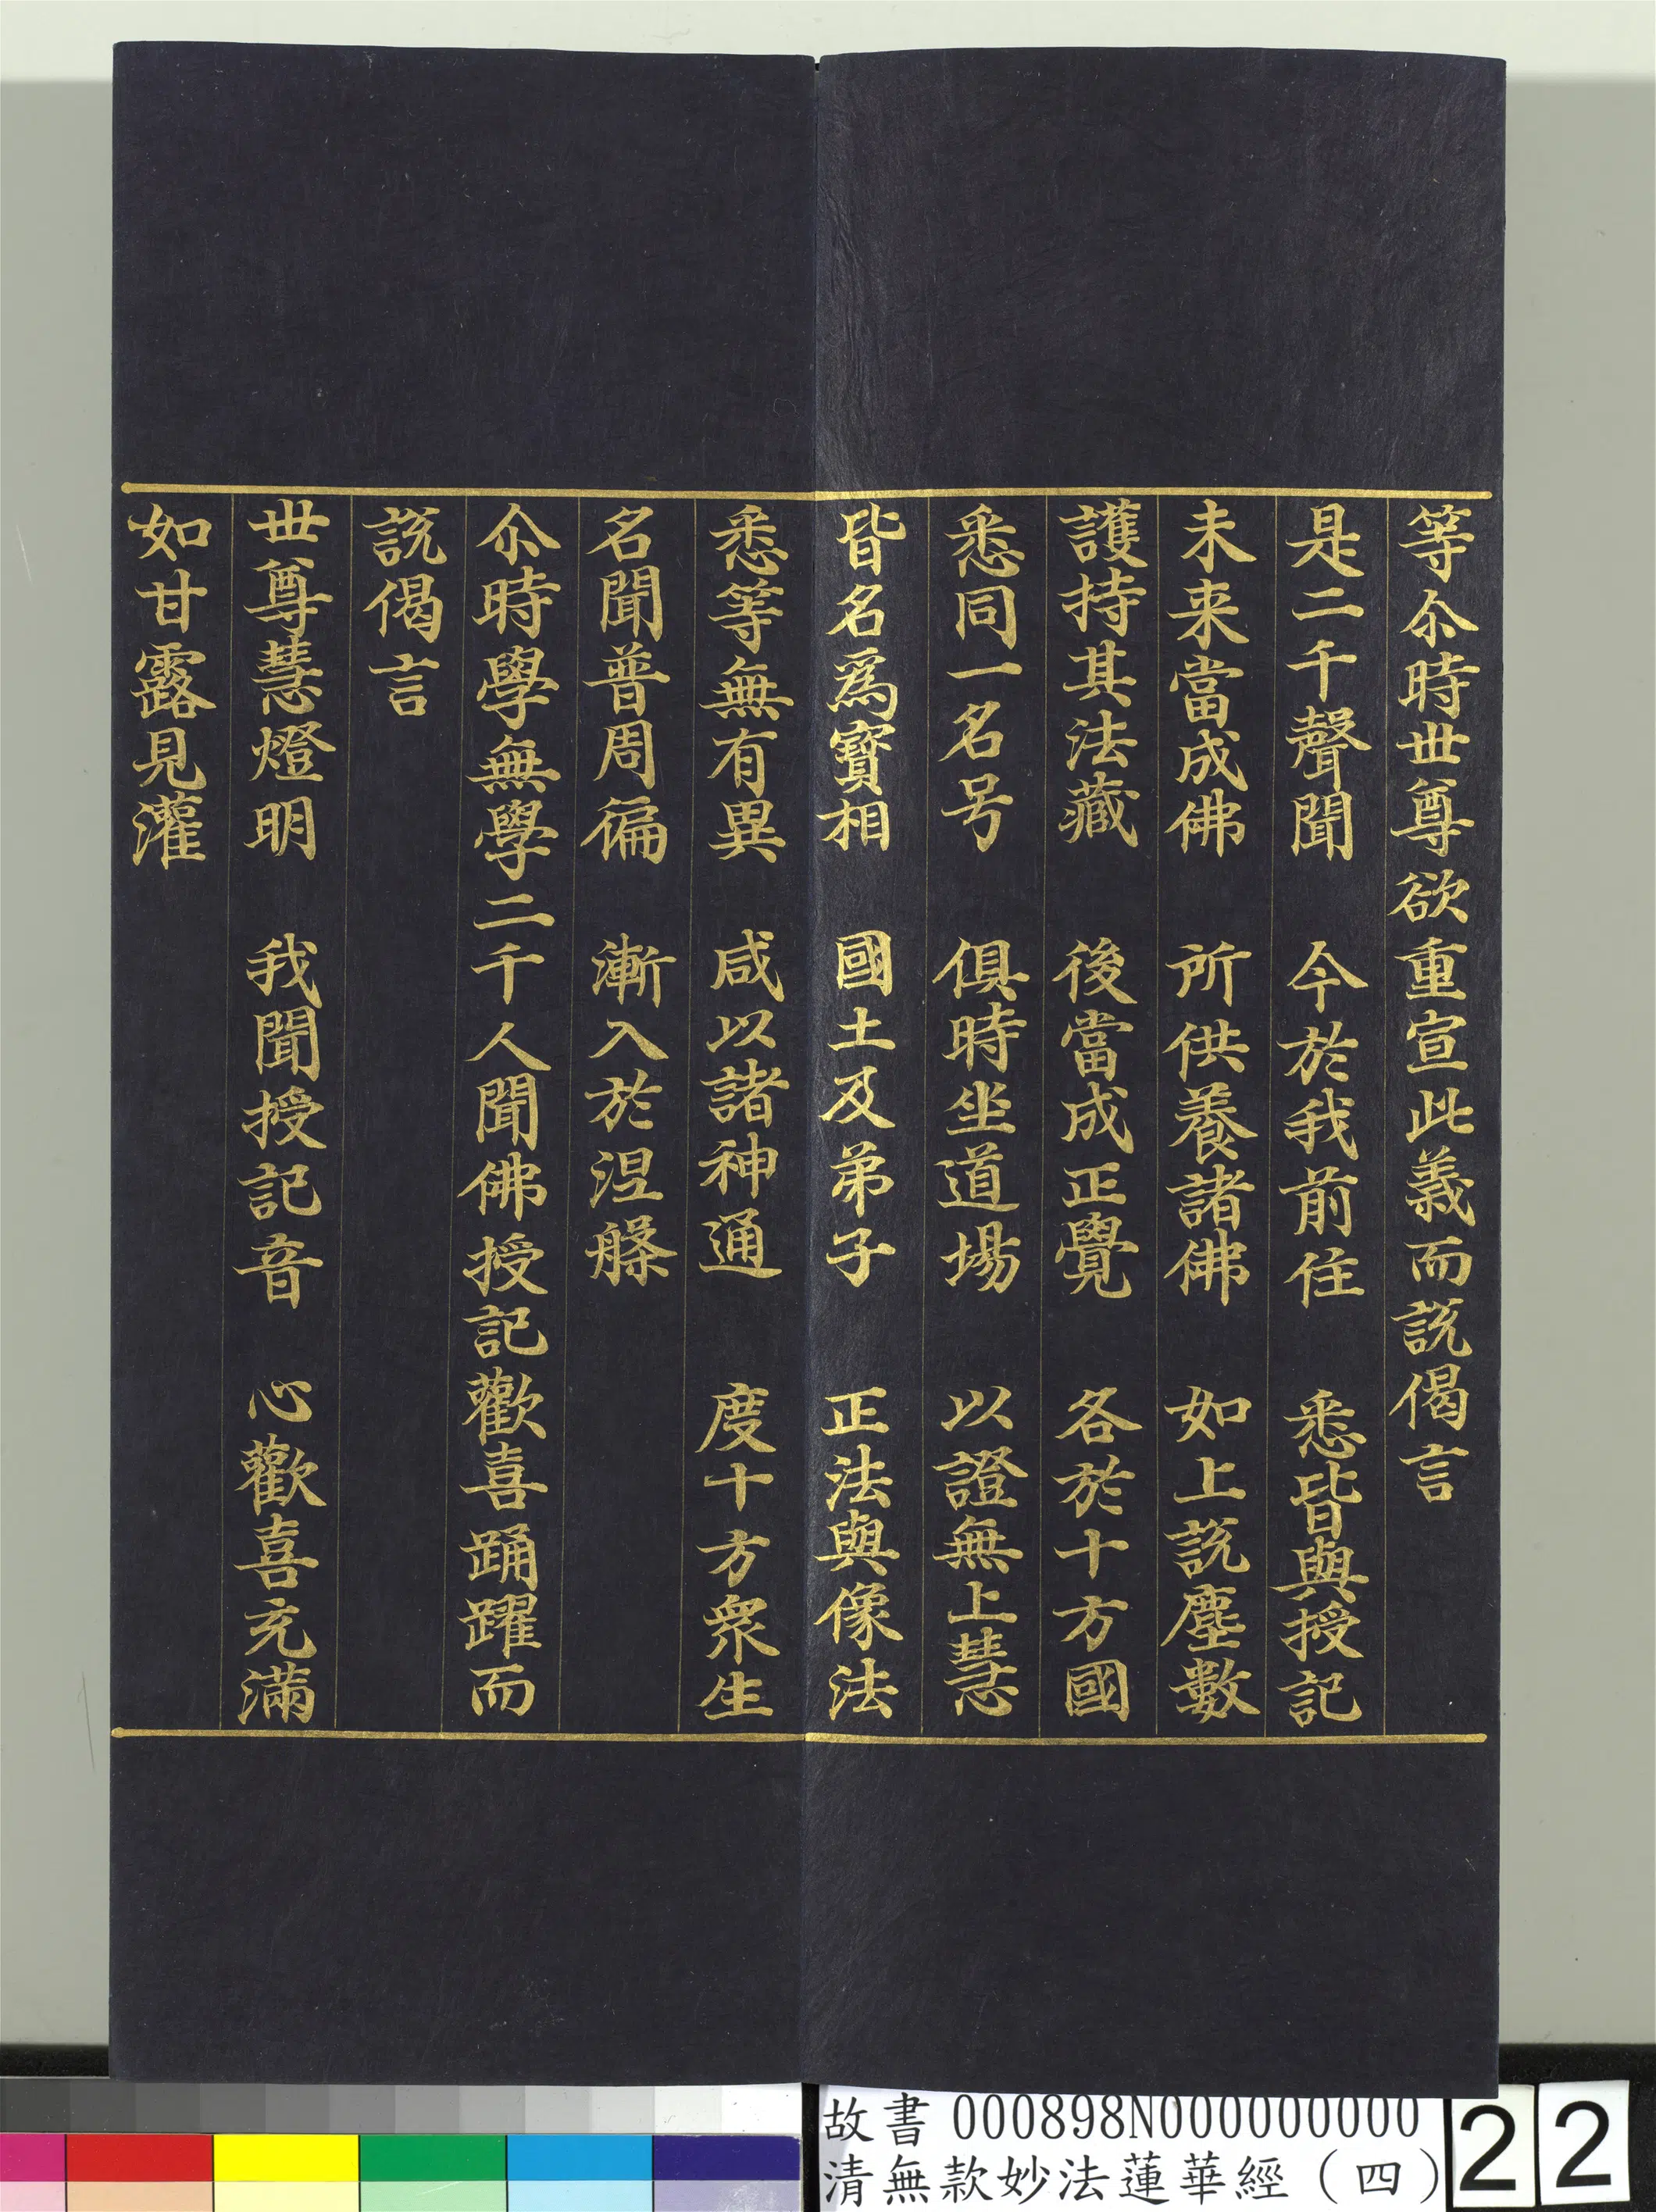 等尒時世尊欲重宣此義而說偈言
是二千聲聞　今於我前住　悉皆與授記
未来當成佛　所供養諸佛　如上說塵數
護持其法藏　後當成正覺　各於十方國
悉同一名号　俱時坐道場　以證無上慧
皆名為寶相　國土及弟子　正法與像法
悉等無有異　咸以諸神通　度十方眾生
名聞普周徧　漸入於涅槃
尒時學無學二千人聞佛授記歡喜踊躍而
說偈言
世尊慧燈明　我聞授記音　心歡喜充滿
如甘露見灌
故書 000898N000000000
清無款妙法蓮華經（四）
22